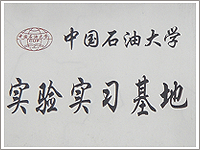 中国石油大学
实验实习基地